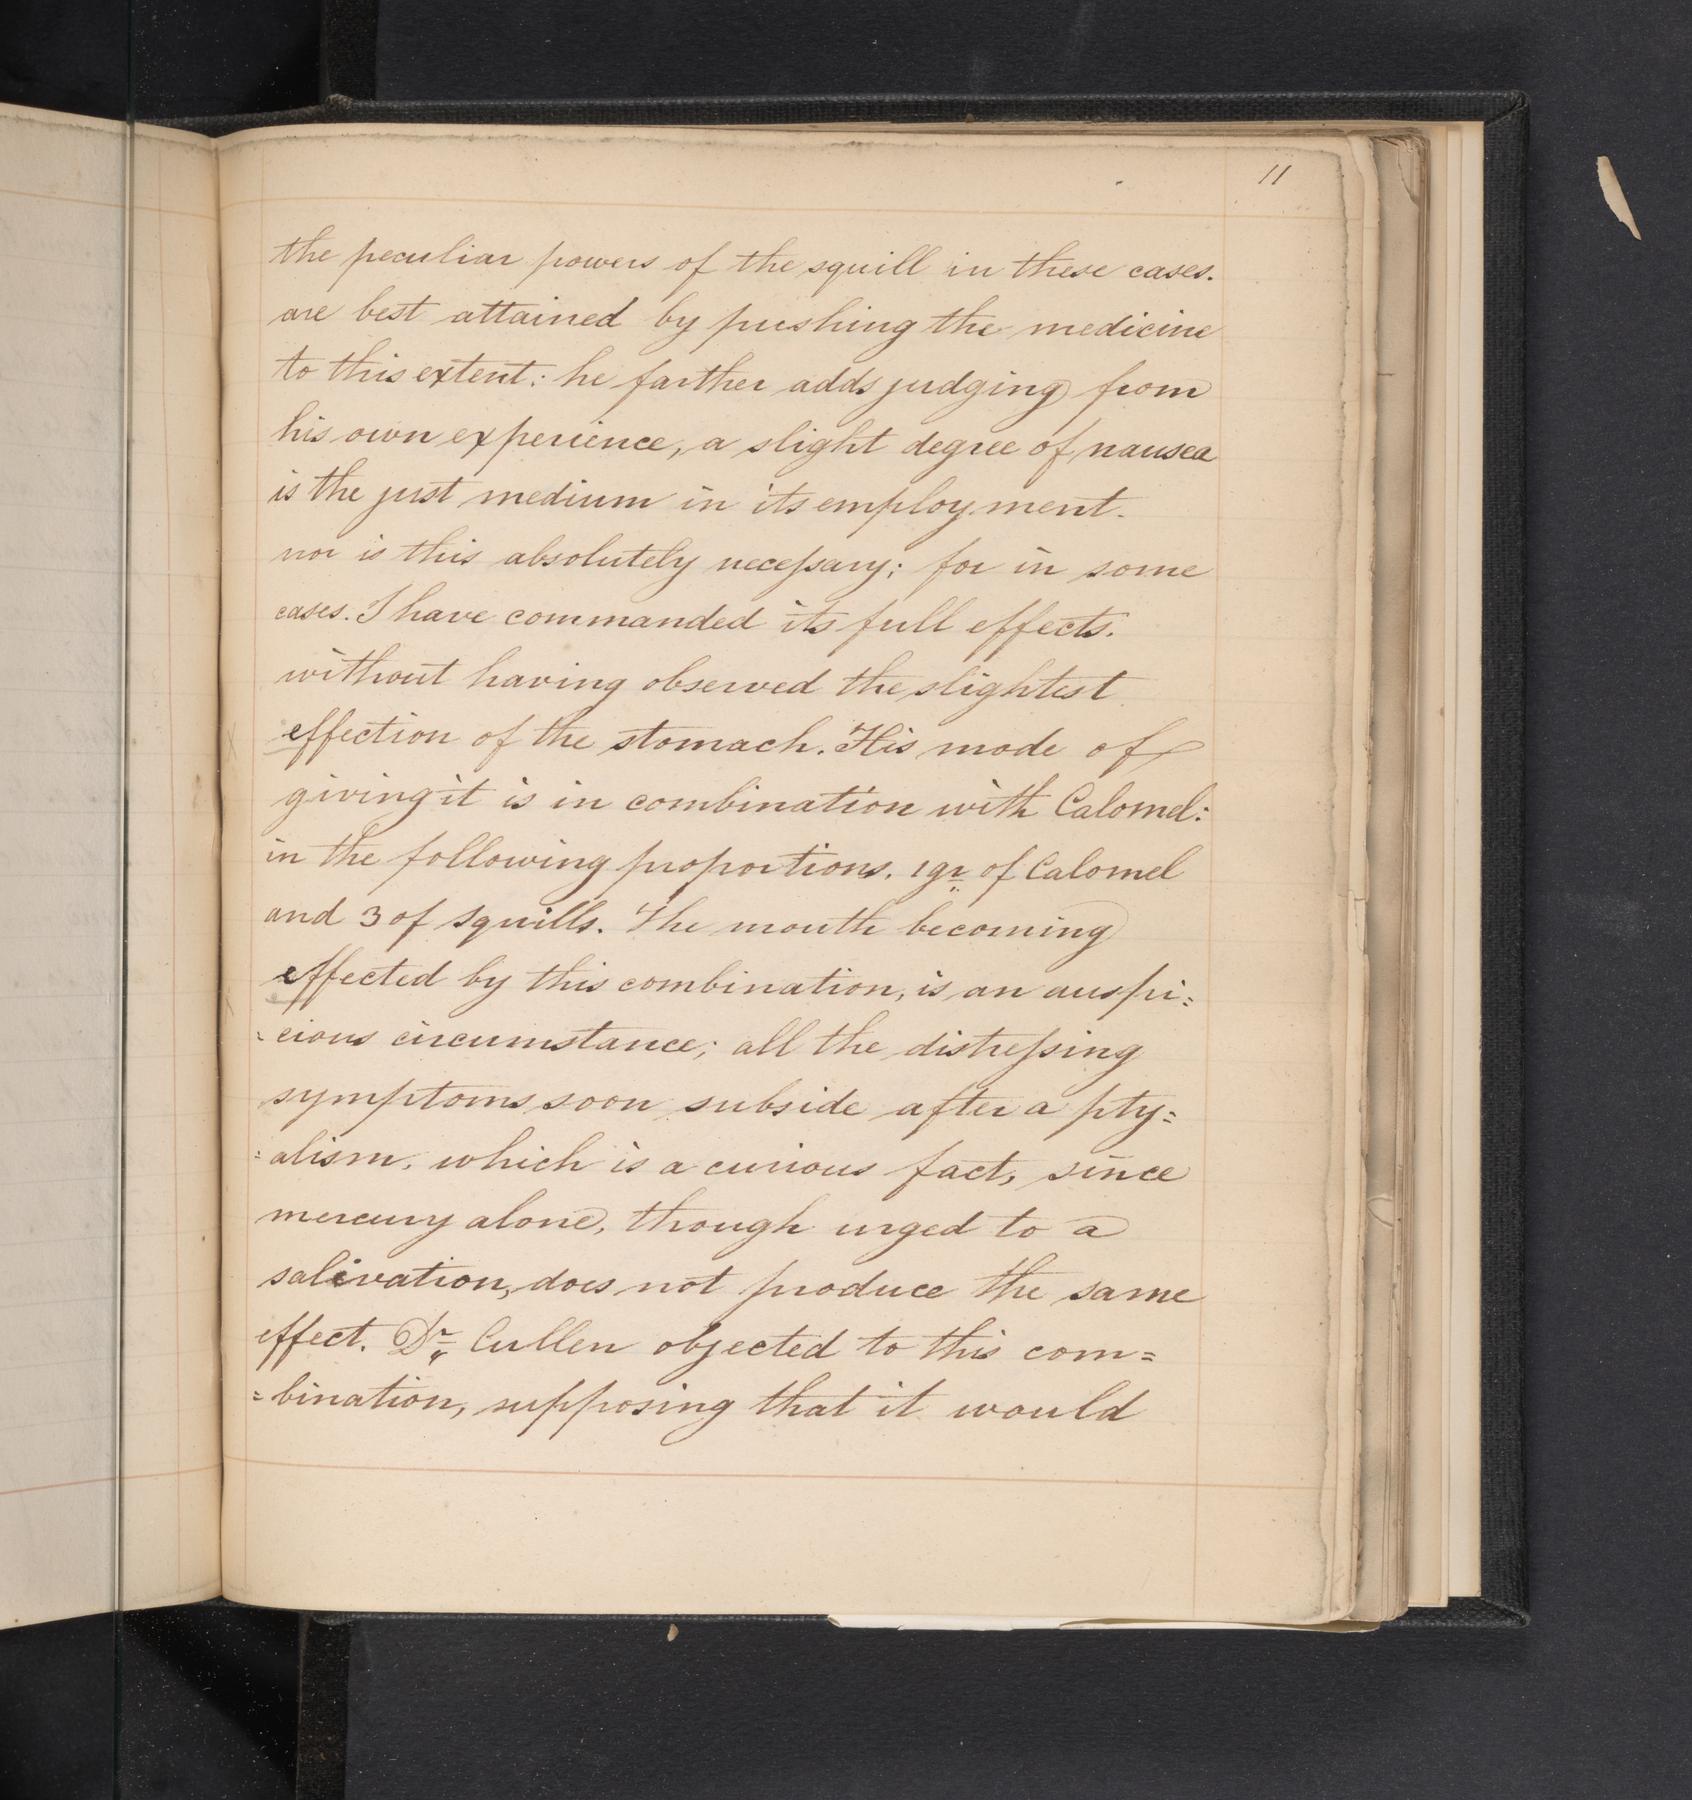 11
the peculiar powers of the squill in these cases.
are best attained by pushing the medicine
to this extent: he farther adds judging from
his own experience, a slight degree of nausea
is the just medium in its employment.
nor is this absolutely neceſsary; for in some
cases. I have commanded its full effects.
without having observed the slightest
effection of the stomach. His mode of
giving it is in combination with Calomel:
in the following proportions. 1gr of Calomel
and 3 of squills. The mouth becoming
effected by this combination, is an auspi=
=cious circumstance; all the distreſsing
symptoms soon subside after a pty=
=alism, which is a curious fact, since
mercury alone, though urged to a
salivation, does not produce the same
effect. Dr Cullen objected to this com=
=bination, supposing that it would